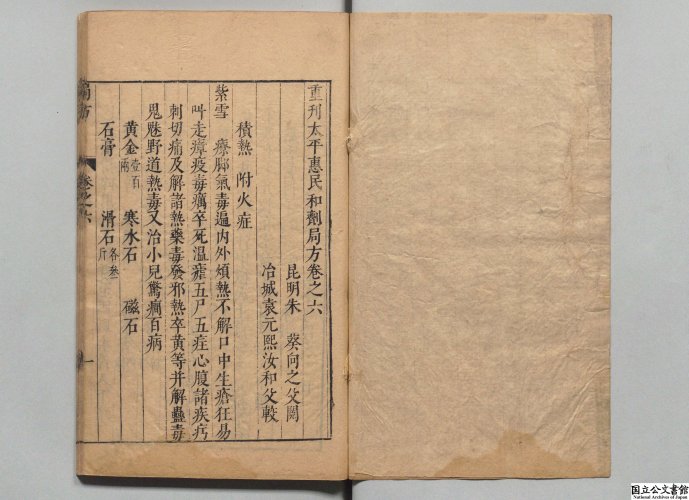 重刋太平惠民和劑局方卷之六
昆明朱　葵向之父閱
冶城袁元熙汝和父較
積熱　附火症
紫雪　療腳氣毒遍內外煩熱不解口中生瘡狂易
叫走瘴疫毒癘卒死溫瘧五尸五疰心腹諸疾㽲
刺切痛及解諸熱藥毒發邪熱卒黃等并解蠱毒
鬼魅野道熱毒又治小兒驚癎百病
黃金壹百兩　寒水石　磁石
石膏　滑石各叁斤
局方
卷之六
一
国立公文書館
National Archives of Japan